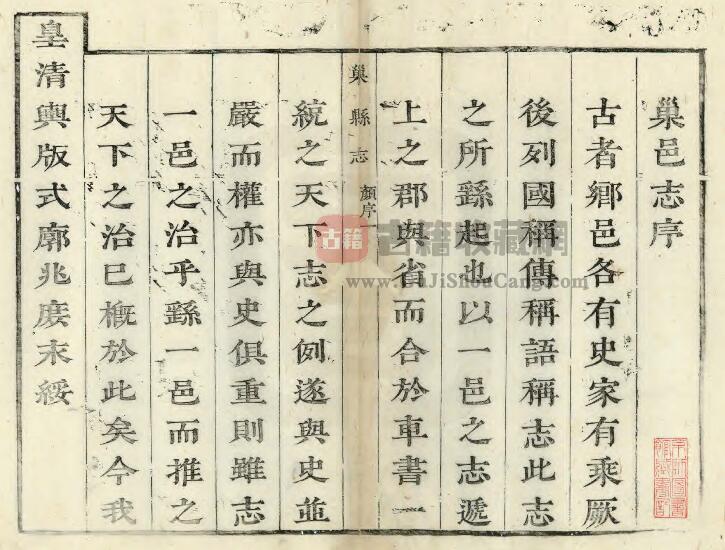 巢邑志序
古者鄉邑各有史家有乘厥
後列國稱傳稱語稱志此志
之所繇起也以一邑之志遞
上之郡與省而合於車書一
巢縣志 顏序 一
統之天下志之例遂與史並
嚴而權亦與史俱重則雖志
一邑之治乎繇一邑而推之
天下之治已概於此矣今我
皇清輿版式廓兆庶末綏
古籍
古籍收藏網
JiShouCang.com